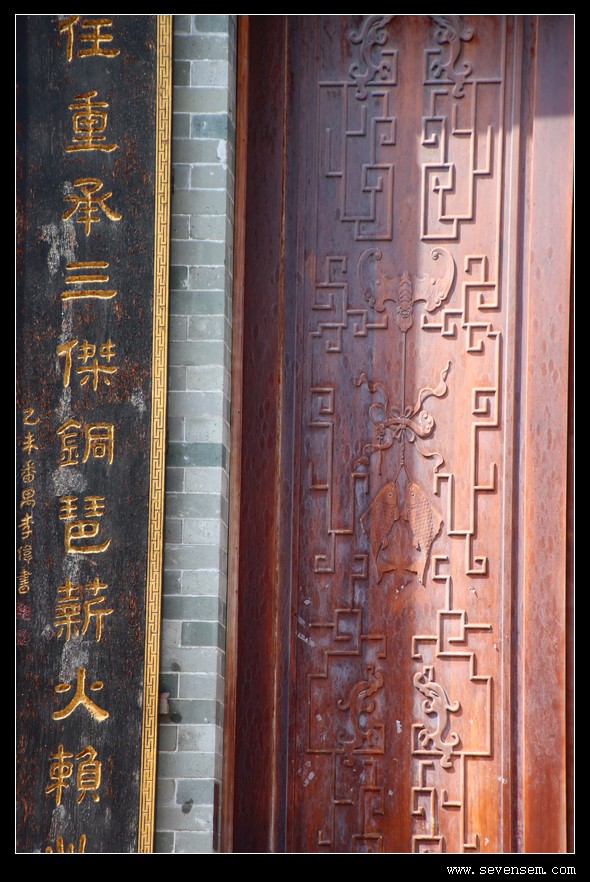 任重承三傑銅琶薪火賴
乙未番禺李偉書
www.sevensem.com